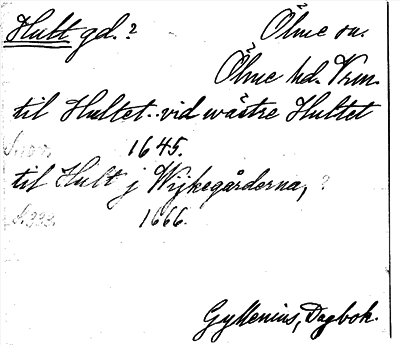 Hult gd.? Ölme sn.
Ölme hd. Vrm.
til Hultet. vid wästre Hultet
1645.
til Hult j Wijkegårderna, ?
1666.
Gyllenius, Dagbok.